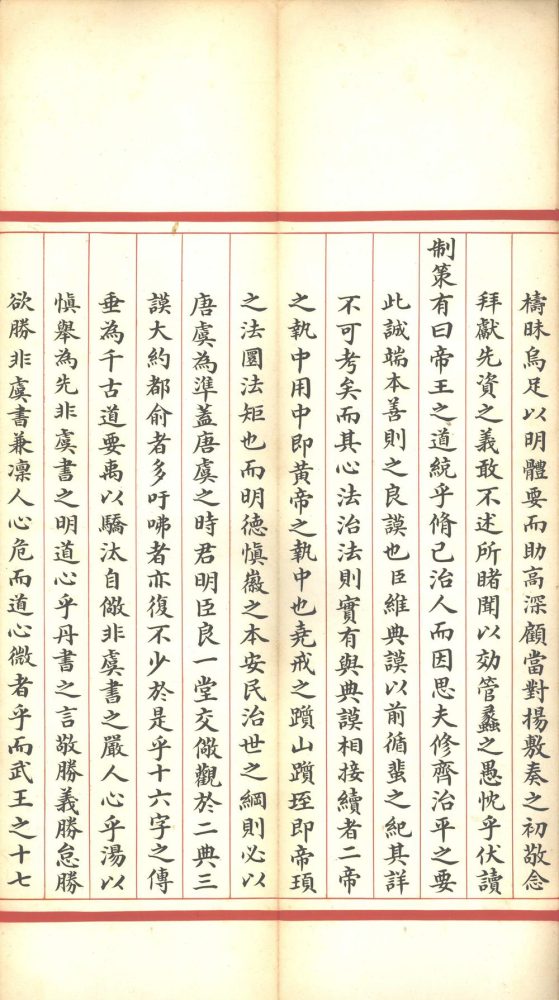 檮昧烏足以明體要而助高深顧當對揚敷奏之初敬念
拜獻先資之義敢不述所睹聞以効管蠡之愚忱乎伏讀
制策有曰帝王之道統乎脩己治人而因思夫修齊治平之要
此誠端本善則之良謨也臣維典謨以前循蜚之紀其詳
不可考矣而其心法治法則實有與典謨相接續者二帝
之執中用中即黄帝之執中也堯戒之躓山躓垤即帝頊
之法圜法矩也而明德慎徽之本安民治世之綱則必以
唐虞為準蓋唐虞之時君明臣良一堂交儆觀於二典三
謨大約都俞者多吁咈者亦復不少於是乎十六字之傳
垂為千古道要禹以驕汰自儆非虞書之嚴人心乎湯以
慎舉為先非虞書之明道心乎丹書之言敬勝義勝怠勝
欲勝非虞書兼凜人心危而道心微者乎而武王之十七